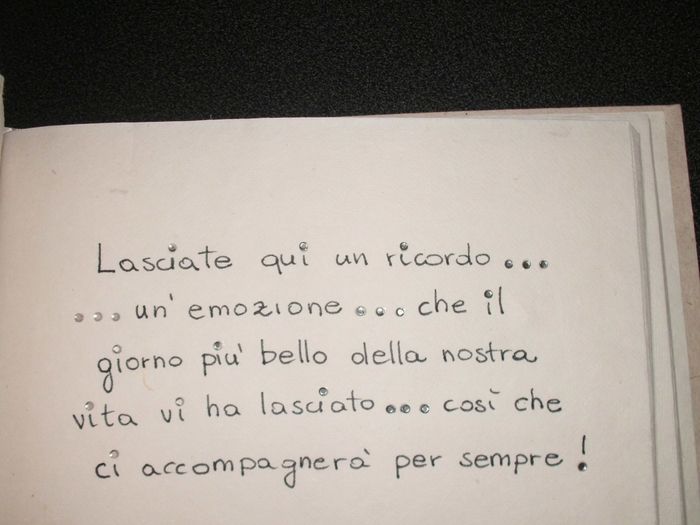 Lasciate qui un ricordo...
...un'emozione...che il
giorno piu' bello della nostra
vita vi ha lasciato...così che
ci accompagnerà per sempre!